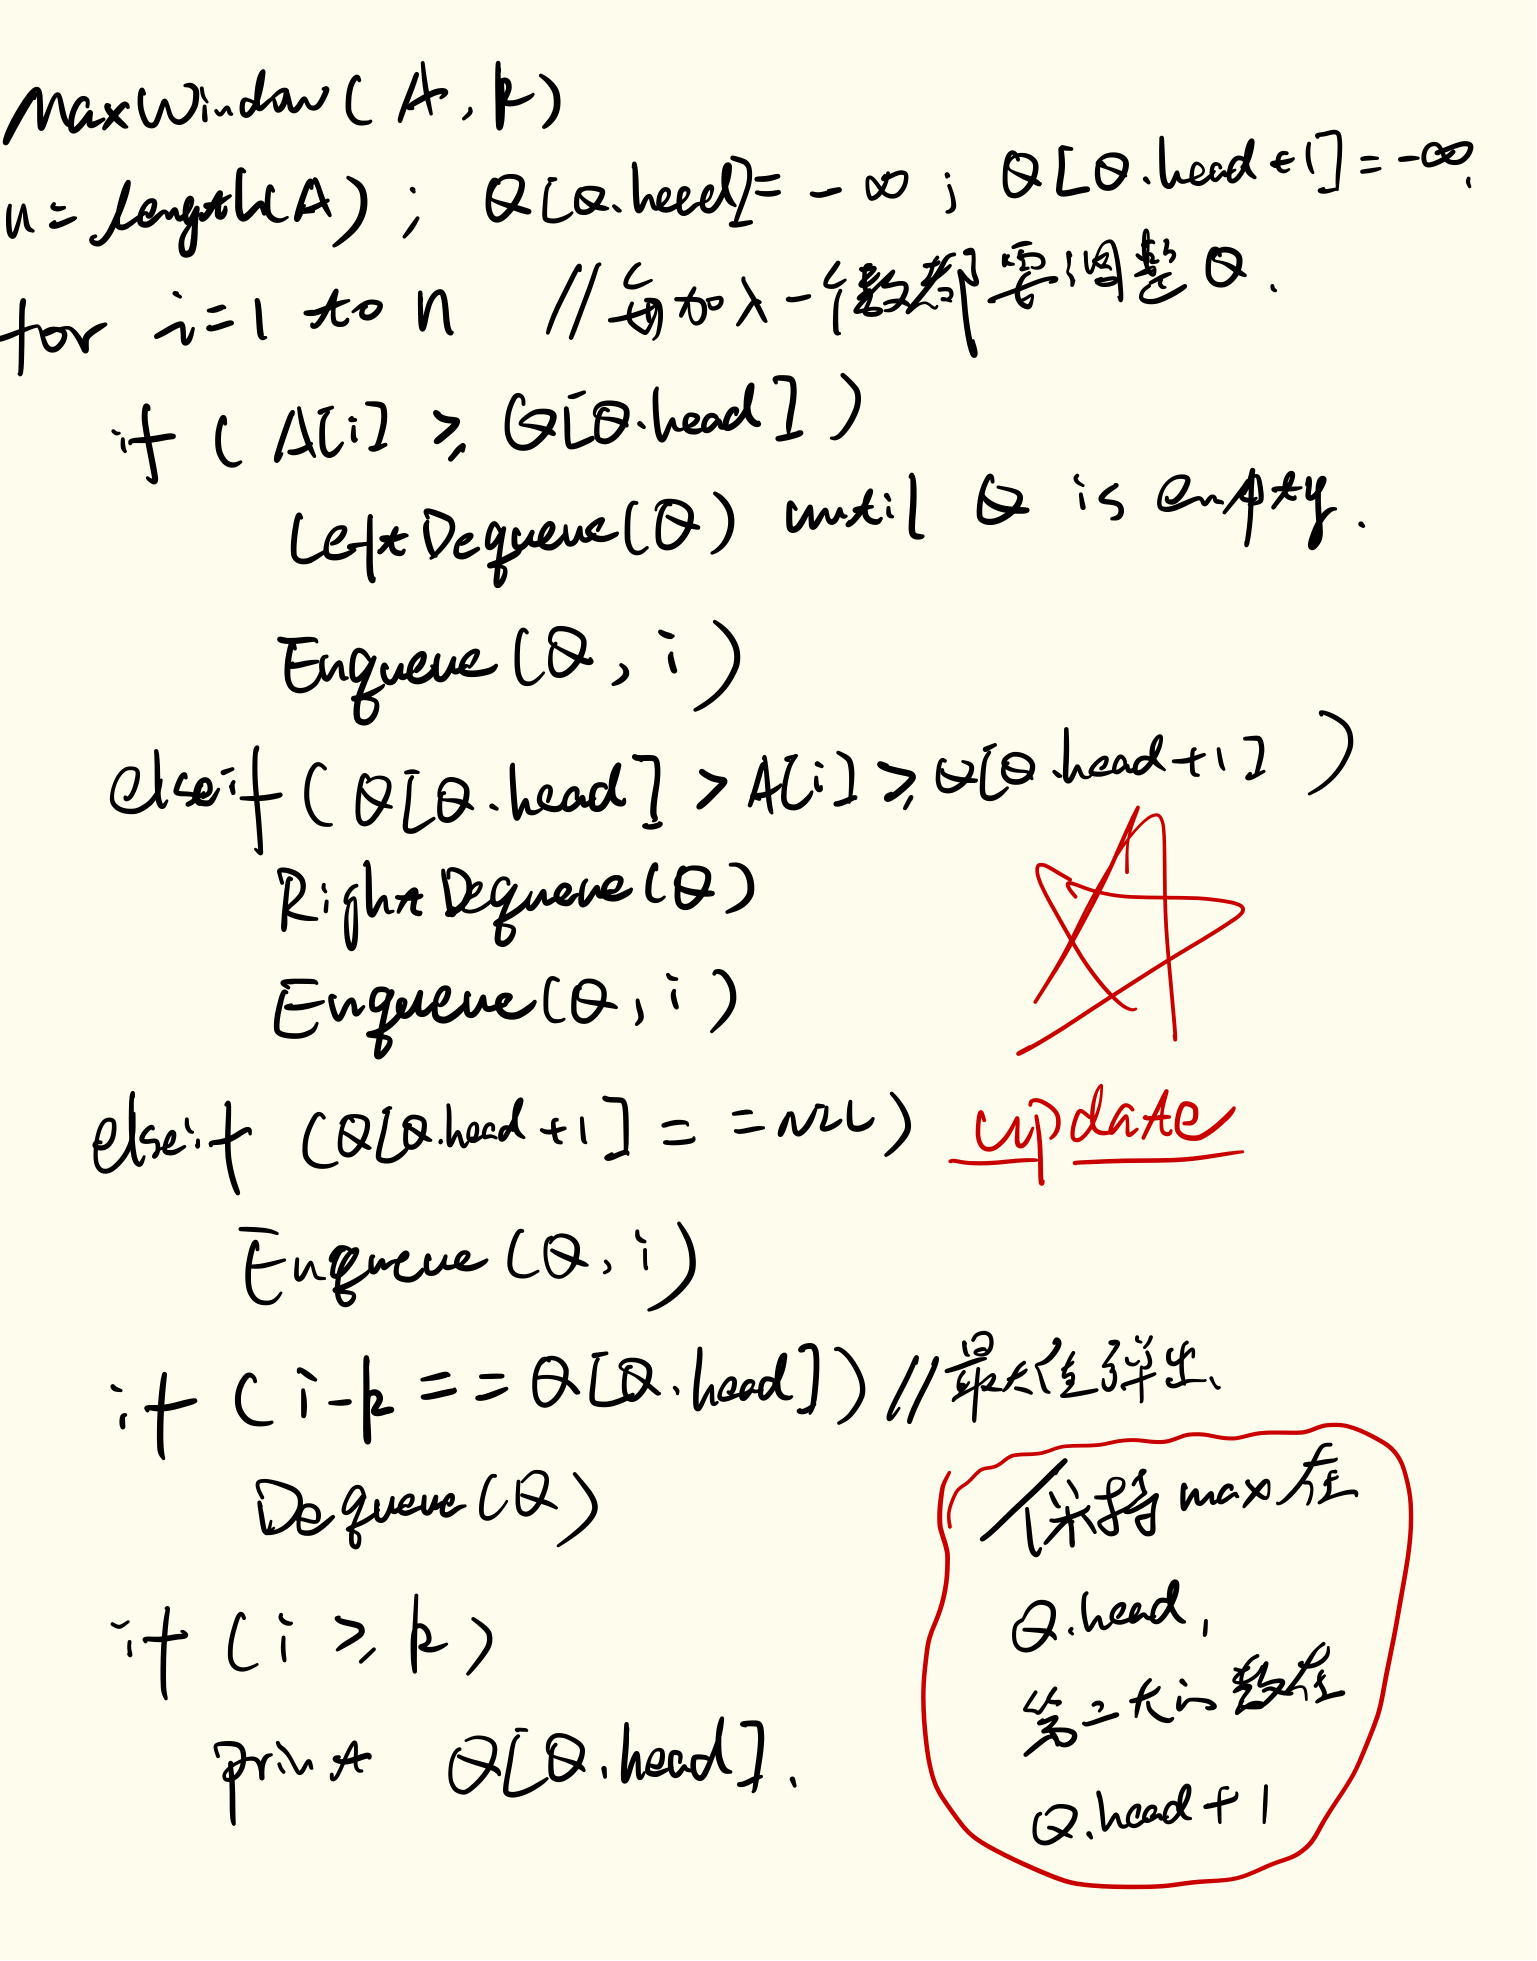 MaxWindow(A,k)
n=length(A); Q[Q.head]=-∞; Q[Q.head+1]=-∞.
for i=1 to n //每加入一个数都需调整Q.
if (A[i] ≥ Q[Q.head])
LeftDequeue(Q) until Q is empty.
Enqueue(Q, i)
elseif (Q[Q.head] > A[i] ≥ Q[Q.head+1])
RightDequeue(Q)
Enqueue(Q, i)
elseif (Q[Q.head+1] ==NIL) update
Enqueue(Q, i)
if (i-k == Q[Q.head]) //最大值弹出
Dequeue(Q)
if (i ≥ k)
print Q[Q.head].
保持max在
Q.head,
第二大的数在
Q.head+1